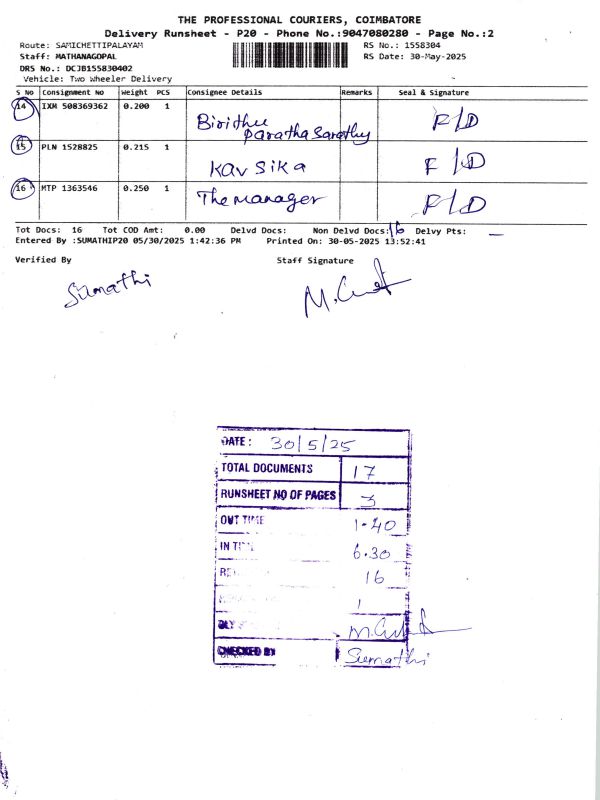 THE PROFESSIONAL COURIERS, COIMBATORE
Delivery Runsheet - P20 - Phone No.:9047080280 - Page No.:2
Route: SAMICHETTIPALAYAM RS No.: 1558304
Staff: MATHANAGOPAL RS Date: 30-May-2025
DRS No.: DCJB155830402
Vehicle: Two Wheeler Delivery
S No Consignment No Weight PCS Consignee Details Remarks Seal & Signature
14 IXM 508369362 0.200 1 Birithu F/D
Paratha Sarathy
15 PLN 1528825 0.215 1 Kavsika F/D
16 MTP 1363546 0.250 1 The manager F/D
Tot Docs: 16 Tot COD Amt: 0.00 Delvd Docs: Non Delvd Docs: 16 Delvy Pts: —
Entered By :SUMATHIP20 05/30/2025 1:42:36 PM Printed On: 30-05-2025 13:52:41
Verified By Staff Signature
Sumathi
DATE: 30/5/25
TOTAL DOCUMENTS 17
RUNSHEET NO OF PAGES 3
OUT TIME 1.40
IN TI 6.30
RE 16
1
DLY
CHECKED BY Sumathi